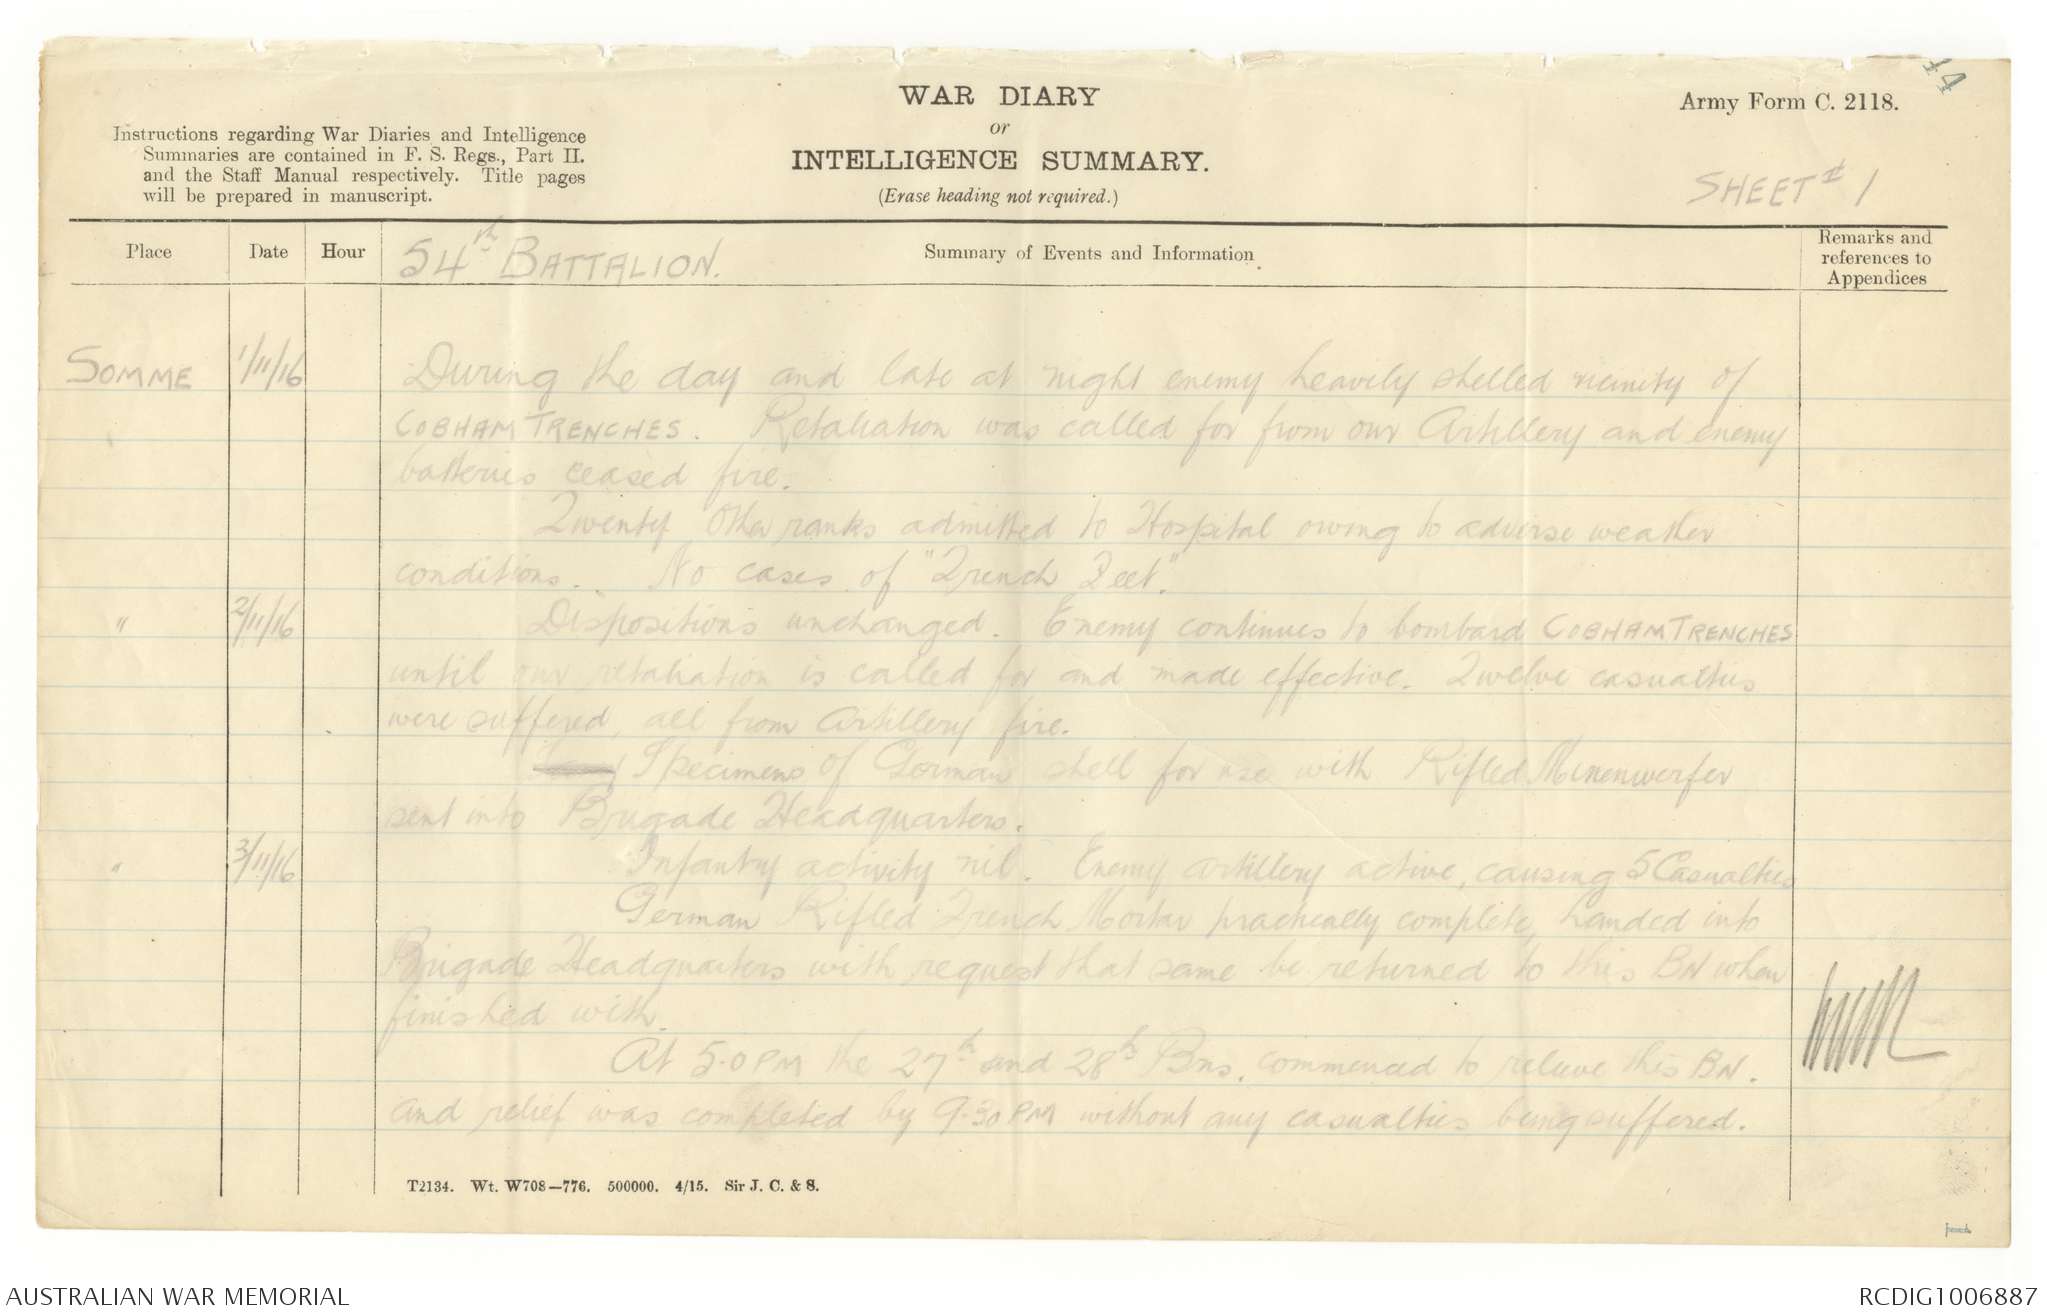 44
WAR DIARY
or
INTELLIGENCE SUMMARY.
(Erase heading not required.)
Army Form C. 2118.
Instructions regarding War Diaries and Intelligence
Summaries are contained in F. S. Regs., Part II.
and the Staff Manual respectively. Title pages
will be prepared in manuscript.
SHEET # 1
Place Date Hour 54th BATTALION. Summary of Events and Information Remarks and
references to
Appendices
SOMME 1/11/16 During the day and late at night enemy heavily shelled vicinity of
COBHAM TRENCHES. Retaliation was called for from our Artillery and enemy
batteries ceased fire.
Twenty Other ranks admitted to Hospital owing to adverse weather
conditions. No cases of "Trench Feet".
" 2/11/16 Dispositions unchanged. Enemy continues to bombard COBHAM TRENCHES
until our retaliation is called for and made effective. Twelve casualties
were suffered, all from Artillery fire.
Specimens of German shell for use with Rifled Minenwerfer
sent into Brigade Headquarters.
" 3/11/16 Infantry activity nil. Enemy artillery active, causing 5 Casualties
German Rifled Trench Mortar practically complete, handed into
Brigade Headquarters with request that same be returned to this BN when
finished with.
At 5.0 PM the 27th and 28th Bns. commenced to relieve this BN.
and relief was completed by 9.30 PM without any casualties being suffered.
T2134. Wt. W708—776. 500000. 4/15. Sir J. C. & S.
AUSTRALIAN WAR MEMORIAL
RCDIG1006887